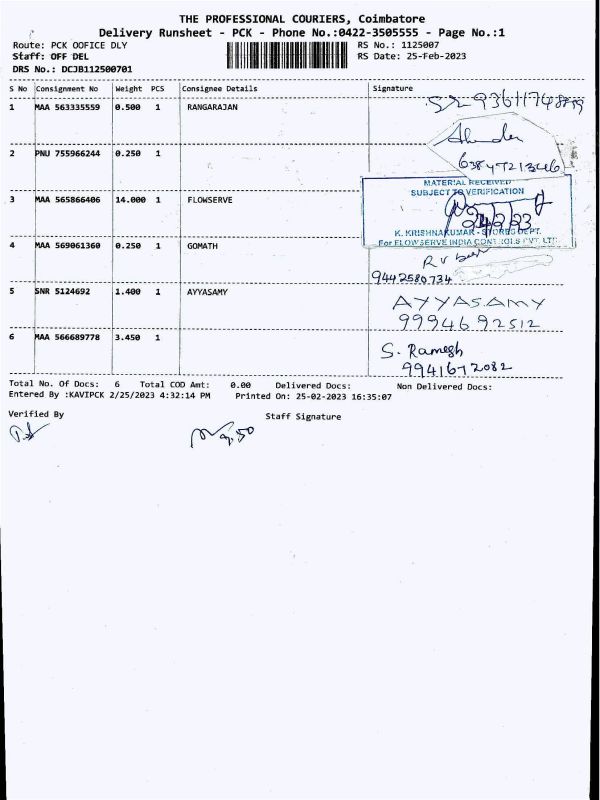 THE PROFESSIONAL COURIERS, Coimbatore
Delivery Runsheet - PCK - Phone No.:0422-3505555 - Page No.:1
Route: PCK OOFICE DLY
RS No.: 1125007
Staff: OFF DEL
RS Date: 25-Feb-2023
DRS No.: DCJB112500701
S No Consignment No Weight PCS Consignee Details Signature
1 MAA 563335559 0.500 1 RANGARAJAN
2 PNU 755966244 0.250 1
6384721346
MATERIAL RECEIVED
SUBJECT TO VERIFICATION
3 MAA 565866406 14.000 1 FLOWSERVE
K. KRISHNAKUMAR - STORES DEPT.
For FLOWSERVE INDIA CONTROLS PVT. LTD
4 MAA 569061360 0.250 1 GOMATH
9442580734
5 SNR 5124692 1.400 1 AYYASAMY
AYYASAMY
9994692512
6 MAA 566689778 3.450 1
S. Ramesh
9941672082
Total No. Of Docs: 6 Total COD Amt: 0.00 Delivered Docs: Non Delivered Docs:
Entered By :KAVIPCK 2/25/2023 4:32:14 PM Printed On: 25-02-2023 16:35:07
Verified By
Staff Signature